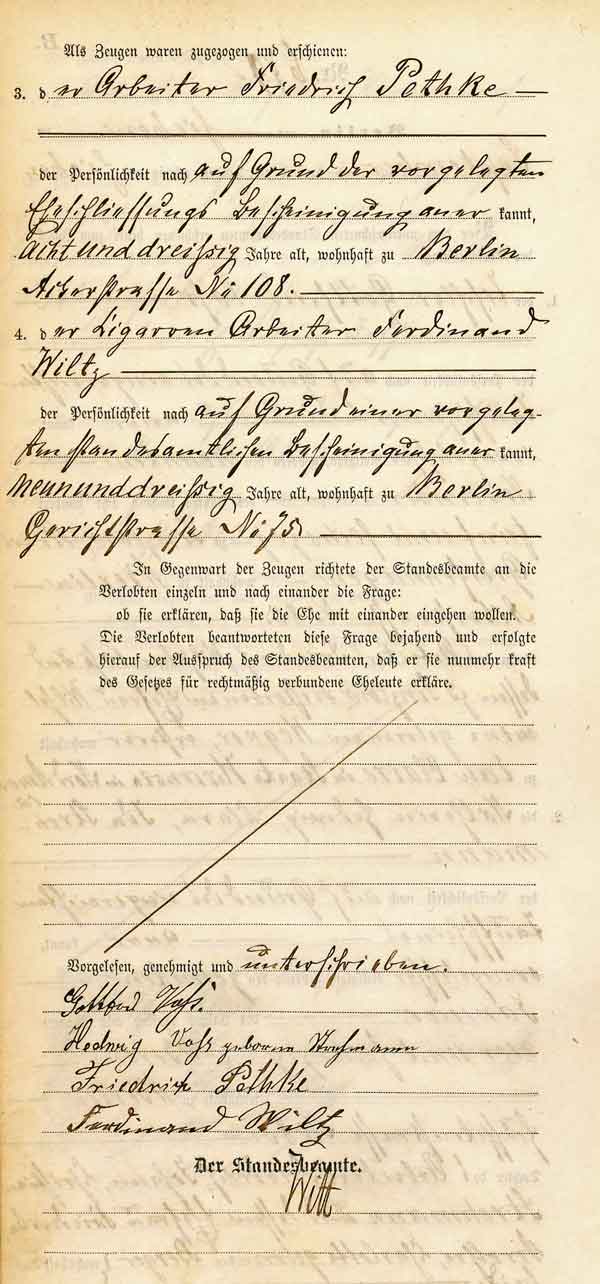 Als Zeugen waren zugezogen und erschienen:
3. der Arbeiter Friedrich Pethke
der Persönlichkeit nach auf Grund der vorgelegten
Eheschliessungs Bescheinigung aner kannt,
achtunddreißig Jahre alt, wohnhaft zu Berlin
Ackerstrasse No 108.
4. der Zigarren Arbeiter Ferdinand
Wiltz
der Persönlichkeit nach auf Grund einer vorgeleg-
ten standesamtlichen Bescheinigung aner kannt,
neununddreißig Jahre alt, wohnhaft zu Berlin
Gerichtstrasse No 75
In Gegenwart der Zeugen richtete der Standesbeamte an die
Verlobten einzeln und nach einander die Frage:
ob sie erklären, daß sie die Ehe mit einander eingehen wollen.
Die Verlobten beantworteten diese Frage bejahend und erfolgte
hierauf der Ausspruch des Standesbeamten, daß er sie nunmehr kraft
des Gesetzes für rechtmäßig verbundene Eheleute erkläre.
Vorgelesen, genehmigt und unterschrieben.
Voss
Hedwig Voss geborene
Friedrich Pethke
Ferdinand Wiltz
Der Standesbeamte.
Witt